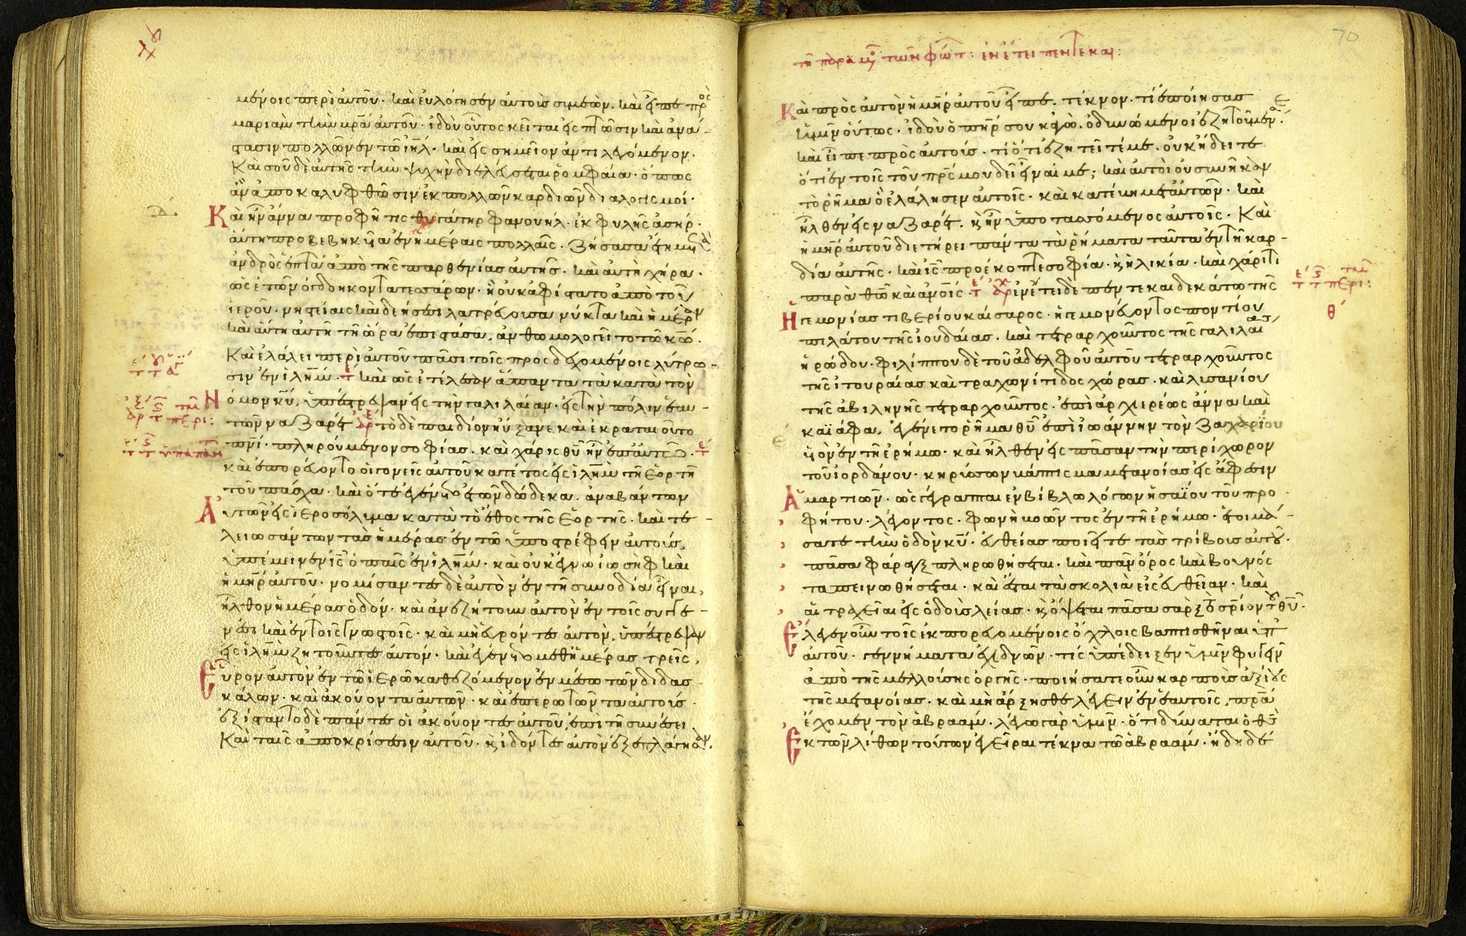 μένοις περὶ αὐτοῦ· καὶ εὐλόγησεν αὐτοὺς συμεὼν. καὶ εἶπε πρὸς
μαριὰμ τὴν μρ̅α αὐτοῦ· ἰδοὺ οὗτος κεῖται εἰς πτῶσιν καὶ ἀνά-
στασιν πολλῶν ἐν τῶ ιη̅λ· καὶ εἰς σημεῖον ἀντιλεγόμενον.
Καὶ σοῦ δὲ αὐτῆς τὴν ψυχὴν διελεύσεται ῥομφαία· ὅπως
ἂν ἀποκαλυφθῶσιν ἐκ πολλῶν καρδιῶν διαλογισμοί·
Καὶ ἦν ἄννα προφῆτις θυγάτηρ φανουὴλ· ἐκ φυλῆς ἀσήρ·
αὕτη προβεβηκυῖα ἐν ἡμέραις πολλαῖς· ζήσασα ἔτη μετὰ
ἀνδρὸς ἑπτὰ ἀπὸ τῆς παρθενίας αὐτῆς· καὶ αὐτὴ χήρα·
ὡς ἐτῶν ὀγδοηκοντατεσσάρων· ἣ οὐκ ἀφίστατο ἀπὸ τοῦ
ἱεροῦ· νηστείαις καὶ δεήσεσι λατρεύουσα νύκτα καὶ ἡμέραν
καὶ αὕτη αὐτῆ τῆ ὥρα ἐπιστᾶσα, ἀνθωμολογεῖτο τῶ κω̅·
Καὶ ἐλάλει περὶ αὐτοῦ πᾶσι τοῖς προσδεχομένοις λύτρω-
σιν ἐν ιλη̅μ· τ καὶ ὡς ἐτέλεσαν ἅπαντα τὰ κατὰ τὸν
Νόμον κυ̅, ὑπέστρεψαν εἰς τὴν γαλιλαίαν· εἰς τὴν πόλιν ἑαυ-
τῶν ναζαρέτ αρ τὸ δὲ παιδίον ηὔξανε καὶ ἐκραταιοῦτο
πνι̅· πληρούμενον σοφίας. καὶ χάρις θυ̅ ἦν ἐπ' αὐτό
καὶ ἐπορεύοντο οἱ γονεῖς αὐτοῦ κατέτος εἰς ιλη̅μ τῆ ἑορτῆ
τοῦ πάσχα· καὶ ὅτε ἐγένετο ἐτῶν δώδεκα. ἀναβάντων
Αὐτῶν εἰς ἱεροσόλυμα κατὰ τὸ ἔθος τῆς ἑορτῆς· καὶ τε-
λειωσάντων τὰς ἡμέρας ἐν τῶ ὑποστρέφειν αὐτοὺς,
ὑπέμεινεν ις̅ ὁ παῖς ἐν ιλη̅μ· καὶ οὐκ ἔγνω ἰωσὴφ καὶ
ἡ μη̅ρ αὐτοῦ· νομίσαντες δὲ αὐτὸν ἐν τῆ συνοδία εἶναι,
ἦλθον ἡμέρας ὁδόν· καὶ ἀνεζήτουν αὐτὸν ἐν τοῖς συγγε-
νέσι καὶ ἐν τοῖς γνωστοῖς· καὶ μὴ εὑρόντες αὐτὸν, ὑπέστρεψαν
εἰς ιλη̅μ ζητοῦντες αὐτόν· καὶ ἐγένετο μεθ' ἡμέρας τρεῖς,
Εὗρον αὐτὸν ἐν τῶ ἱερῶ καθεζόμενον ἐν μέσω τῶν διδασ-
κάλων· καὶ ἀκούοντα αὐτῶν· καὶ ἐπερωτῶντα αὐτούς·
ἐξίσταντο δὲ πάντες οἱ ἀκούοντες αὐτοῦ, ἐπὶ τῆ συνέσει
Καὶ ταῖς ἀποκρίσεσιν αὐτοῦ· κ ἰδόντες αὐτὸν ἐξεπλάγησαν.
70
Καὶ πρὸς αὐτὸν ἡ μη̅ρ αὐτοῦ εἶπε. τέκνον· τί ἐποίησας
ἡμῖν οὕτως· ἰδοὺ ὁ πη̅ρ σου κἀγὼ. ὀδυνώμενοι ἐζητοῦμέν σε
καὶ εἶπε πρὸς αὐτούς. τί ὅτι ἐζητεῖτέ με. οὐκ ἤδειτε
ὅτι ἐν τοῖς τοῦ πρ̅ς μου δεῖ εἶναί με; καὶ αὐτοὶ οὐ συνῆκαν
τὸ ῥῆμα ὃ ἐλάλησεν αὐτοῖς· καὶ κατέβη μετ' αὐτῶν· καὶ
ἦλθεν εἰς ναζαρέτ. κ ἦν ὑποτασσόμενος αὐτοῖς· Καὶ
ἡ μη̅ρ αὐτοῦ διετήρει πάντα τὰ ῥήματα ταῦτα ἐν τῆ καρ-
δία αὐτῆς· καὶ ις̅ προέκοπτε σοφία· κ ἡλικία· καὶ χάριτι
παρὰ θω̅ καὶ ἀνοις̅· τ αρ ἐν ἔτει δὲ πέντε και δεκάτω τῆς
Ἡγεμονίας τιβερίου καίσαρος· ἡγεμονεύοντος ποντίου
πιλάτου τῆς ἰουδαίας· καὶ τετραρχοῦντος τῆς γαλιλαίας
ἡρώδου· φιλίππου δὲ τοῦ ἀδελφοῦ αὐτοῦ τετραρχοῦντος
τῆς ἰτουραίας καὶ τραχωνίτιδος χώρας· καὶ λυσανίου
τῆς ἀβιληνῆς τετραρχοῦντος· ἐπὶ ἀρχιερέως ἄννα καὶ
καϊάφα, ἐγένετο ῥῆμα θυ̅ ἐπὶ ἰωάννην τὸν ζαχαρίου
υν̅ ἐν τῆ ἐρήμω· καὶ ἦλθεν εἰς πᾶσαν τὴν περίχωρον
τοῦ ἰορδάνου· κηρύσσων βάπτισμα μετανοίας εἰς ἄφεσιν
Ἁμαρτιῶν· ὡς γέγραπται ἐν βίβλω λόγων ἡσαΐου τοῦ προ-
φήτου· λέγοντος· φωνὴ βοῶντος ἐν τῆ ἐρήμω· ἑτοιμά-
σατε τὴν ὁδὸν κυ̅· εὐθείας ποιεῖτε τὰς τρίβους αὐτοῦ·
πᾶσα φάραγξ πληρωθήσεται· καὶ πᾶν ὄρος καὶ βουνὸς
ταπεινωθήσεται· καὶ ἔσται τὰ σκολιὰ εἰς εὐθεῖαν· καὶ
αἱ τραχεῖαι εἰς ὁδοὺς λείας· κ ὄψεται πᾶσα σὰρξ τὸ σριον̅ τοῦ θυ̅·
Ἔλεγεν οὖν τοῖς ἐκπορευομένοις ὄχλοις βαπτισθῆναι ὑπ'
αὐτοῦ· γεννήματα ἐχιδνῶν· τίς ὑπέδειξεν ὑμῖν φυγεῖν
ἀπὸ τῆς μελλούσης ὀργῆς· ποιήσατε οὖν καρποὺς ἀξίους
τῆς μετανοίας· καὶ μὴ ἄρξησθε λέγειν ἐν ἑαυτοῖς, πρ̅α
ἔχομεν τὸν ἀβραάμ· λέγω γὰρ ὑμῖν· ὅτι δύναται ὁ θς̅
Ἐκ τῶν λίθων τούτων ἐγεῖραι τέκνα τῶ ἀβραάμ· ἤδη δὲ